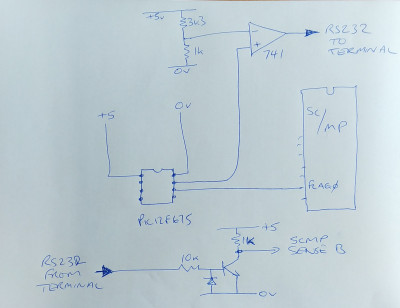 +5v
3k3
1k
0v
-
+
741
RS232
TO
TERMINAL
+5
0v
SC
/MP
FLAG0
PIC12F675
+5
1k
SCMP
SENSE B
RS232
FROM
TERMINAL
10k
0v